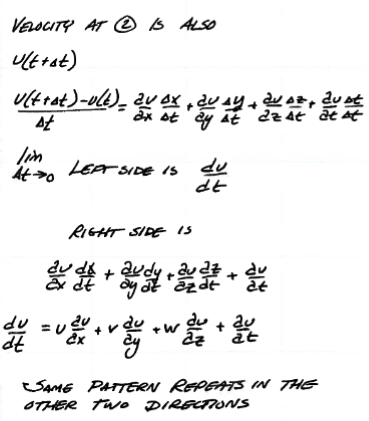 VELOCITY AT ② IS ALSO
U(t+Δt)
U(t+Δt)-U(t)/Δt = ∂u/∂x Δx/Δt + ∂u/∂y Δy/Δt + ∂u/∂z Δz/Δt + ∂u/∂t Δt/Δt
lim Δt→0 LEFT SIDE IS du/dt
RIGHT SIDE IS
∂u/∂x dx/dt + ∂u/∂y dy/dt + ∂u/∂z dz/dt + ∂u/∂t
du/dt = u ∂u/∂x + v ∂u/∂y + w ∂u/∂z + ∂u/∂t
SAME PATTERN REPEATS IN THE
OTHER TWO DIRECTIONS